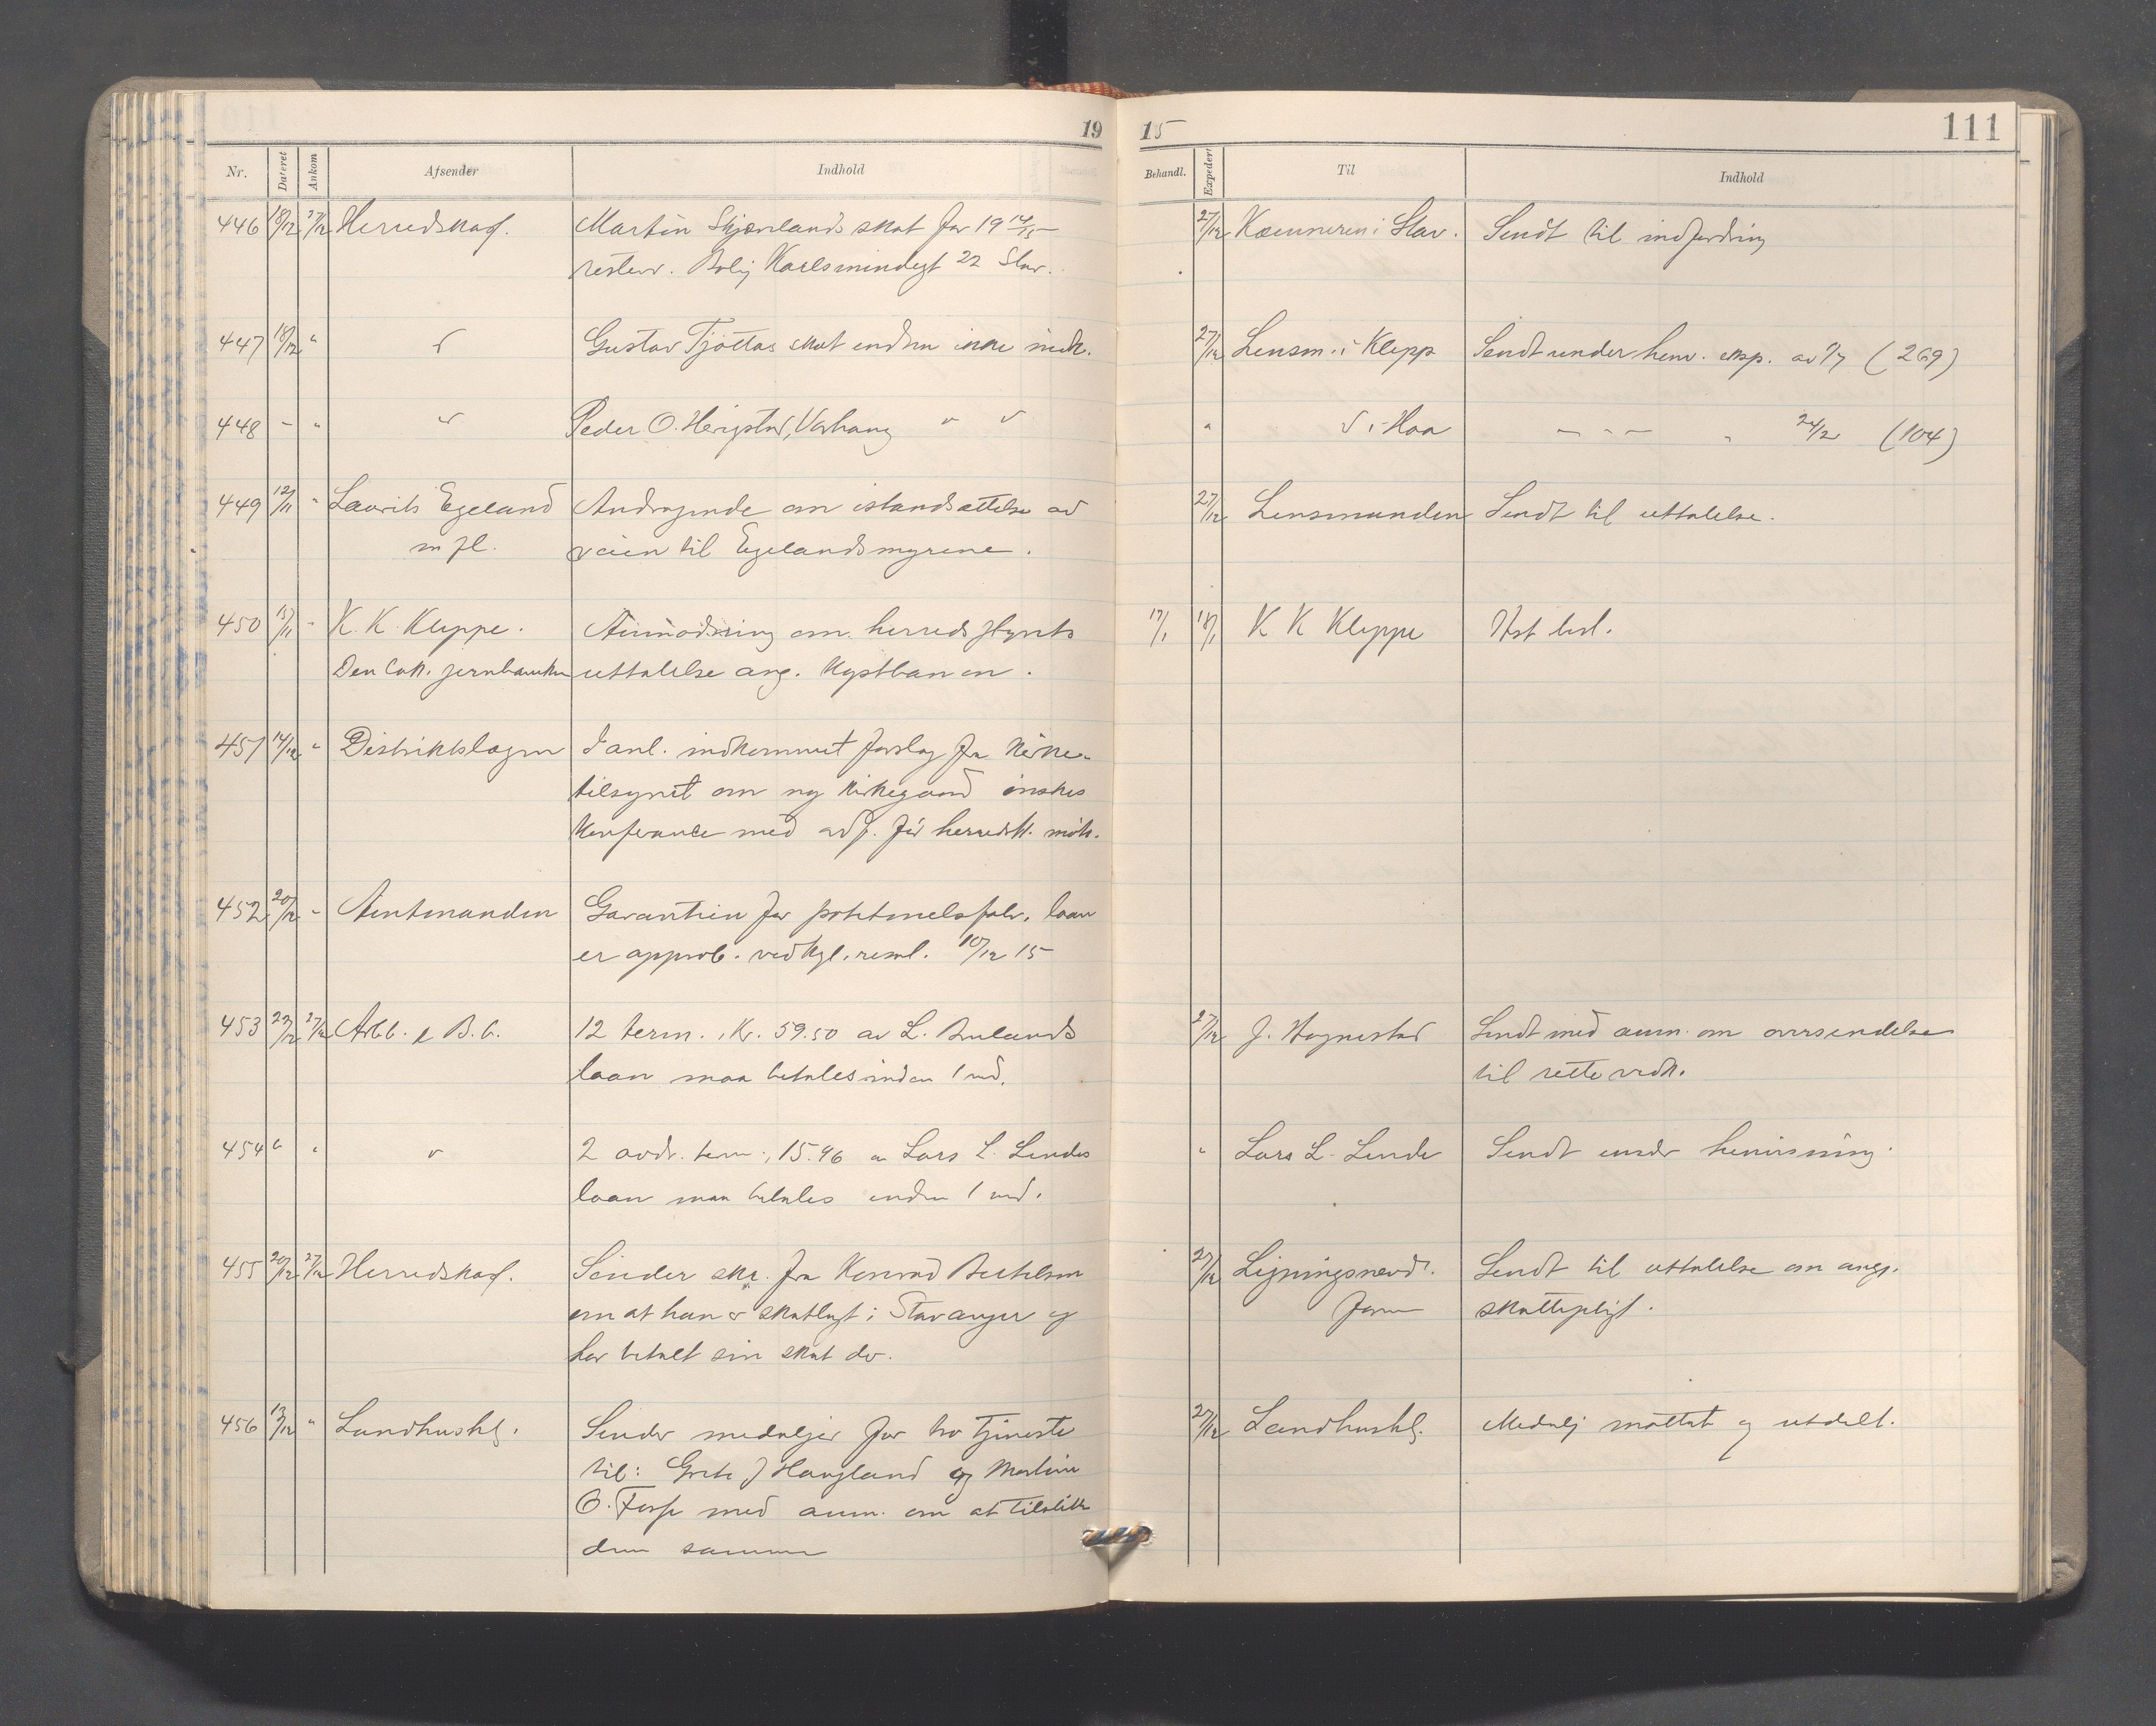 19 15 111
Nr. Dateret Ankom Afsender Indhold Behandl. Expedert Til Indhold
446 18/12 27/12 Herredskas. Martin Skjærelands skat for 19 14/15 27/12 Kæmneren i Stav. Sendt til indfordring
restere. Bolig Karlsmindegt 22 Stav.
447 18/12 " " Gustav Tjøttas skat endnu ikke indk. 27/12 Lensm. i Klepp Sendt under henv. eksp. av (269)
448 - " " Peder O. Herigstad, Varhaug " " " " i Haa — " — " 24/2 (104)
449 12/11 " Laurits Egeland Andragende om istandsættelse av 27/12 Lensmanden Sendt til uttalelse.
m fl. veien til Egelandsmyrene.
450 13/11 " K. K. Kleppe. Anmodning om herredsstyrets 17/1 18/1 K K Kleppe Utst besl.
Den jernbanekom uttalelse ang. Kystbanen.
451 14/12 " Distriktslægen I anl. indkommet forslag fra kirke-
tilsynet om ny kirkegaard ønskes
konferance med ordf. før herredst. møte.
452 20/12 " Amtmanden Garantien for potetmelsfabr. laan
er approb. ved kgl. resol. 10/12 15
453 22/12 27/12 Arbb. & B.b. 12 term. Kr. 59.50 av L. Buelands 27/12 J. Hognestad Sendt med anm. om oversendelse
laan maa betales inden 1 md. til rette vedk.
454 " " " 2 avdr. term., 15.96 a Lars L. Lendes " Lars L. Lende Sendt under henvisning.
laan maa betales inden 1 md.
455 20/12 27/12 Herredskas. Sender skr. fra Konrad Bertelsen 27/12 Ligningsnævd. Sendt til uttalelse om angj.
om at han er skatlagt i Stavanger og form skattepligt.
har betalt sin skat der.
456 13/12 " Landhushs. Sender medaljer for tro tjeneste 27/12 Landhushs. Medalj mottat og utdelt.
til: Grete J Haugland og Martine
O. Fosse med anm. om at tilstille
dem samme